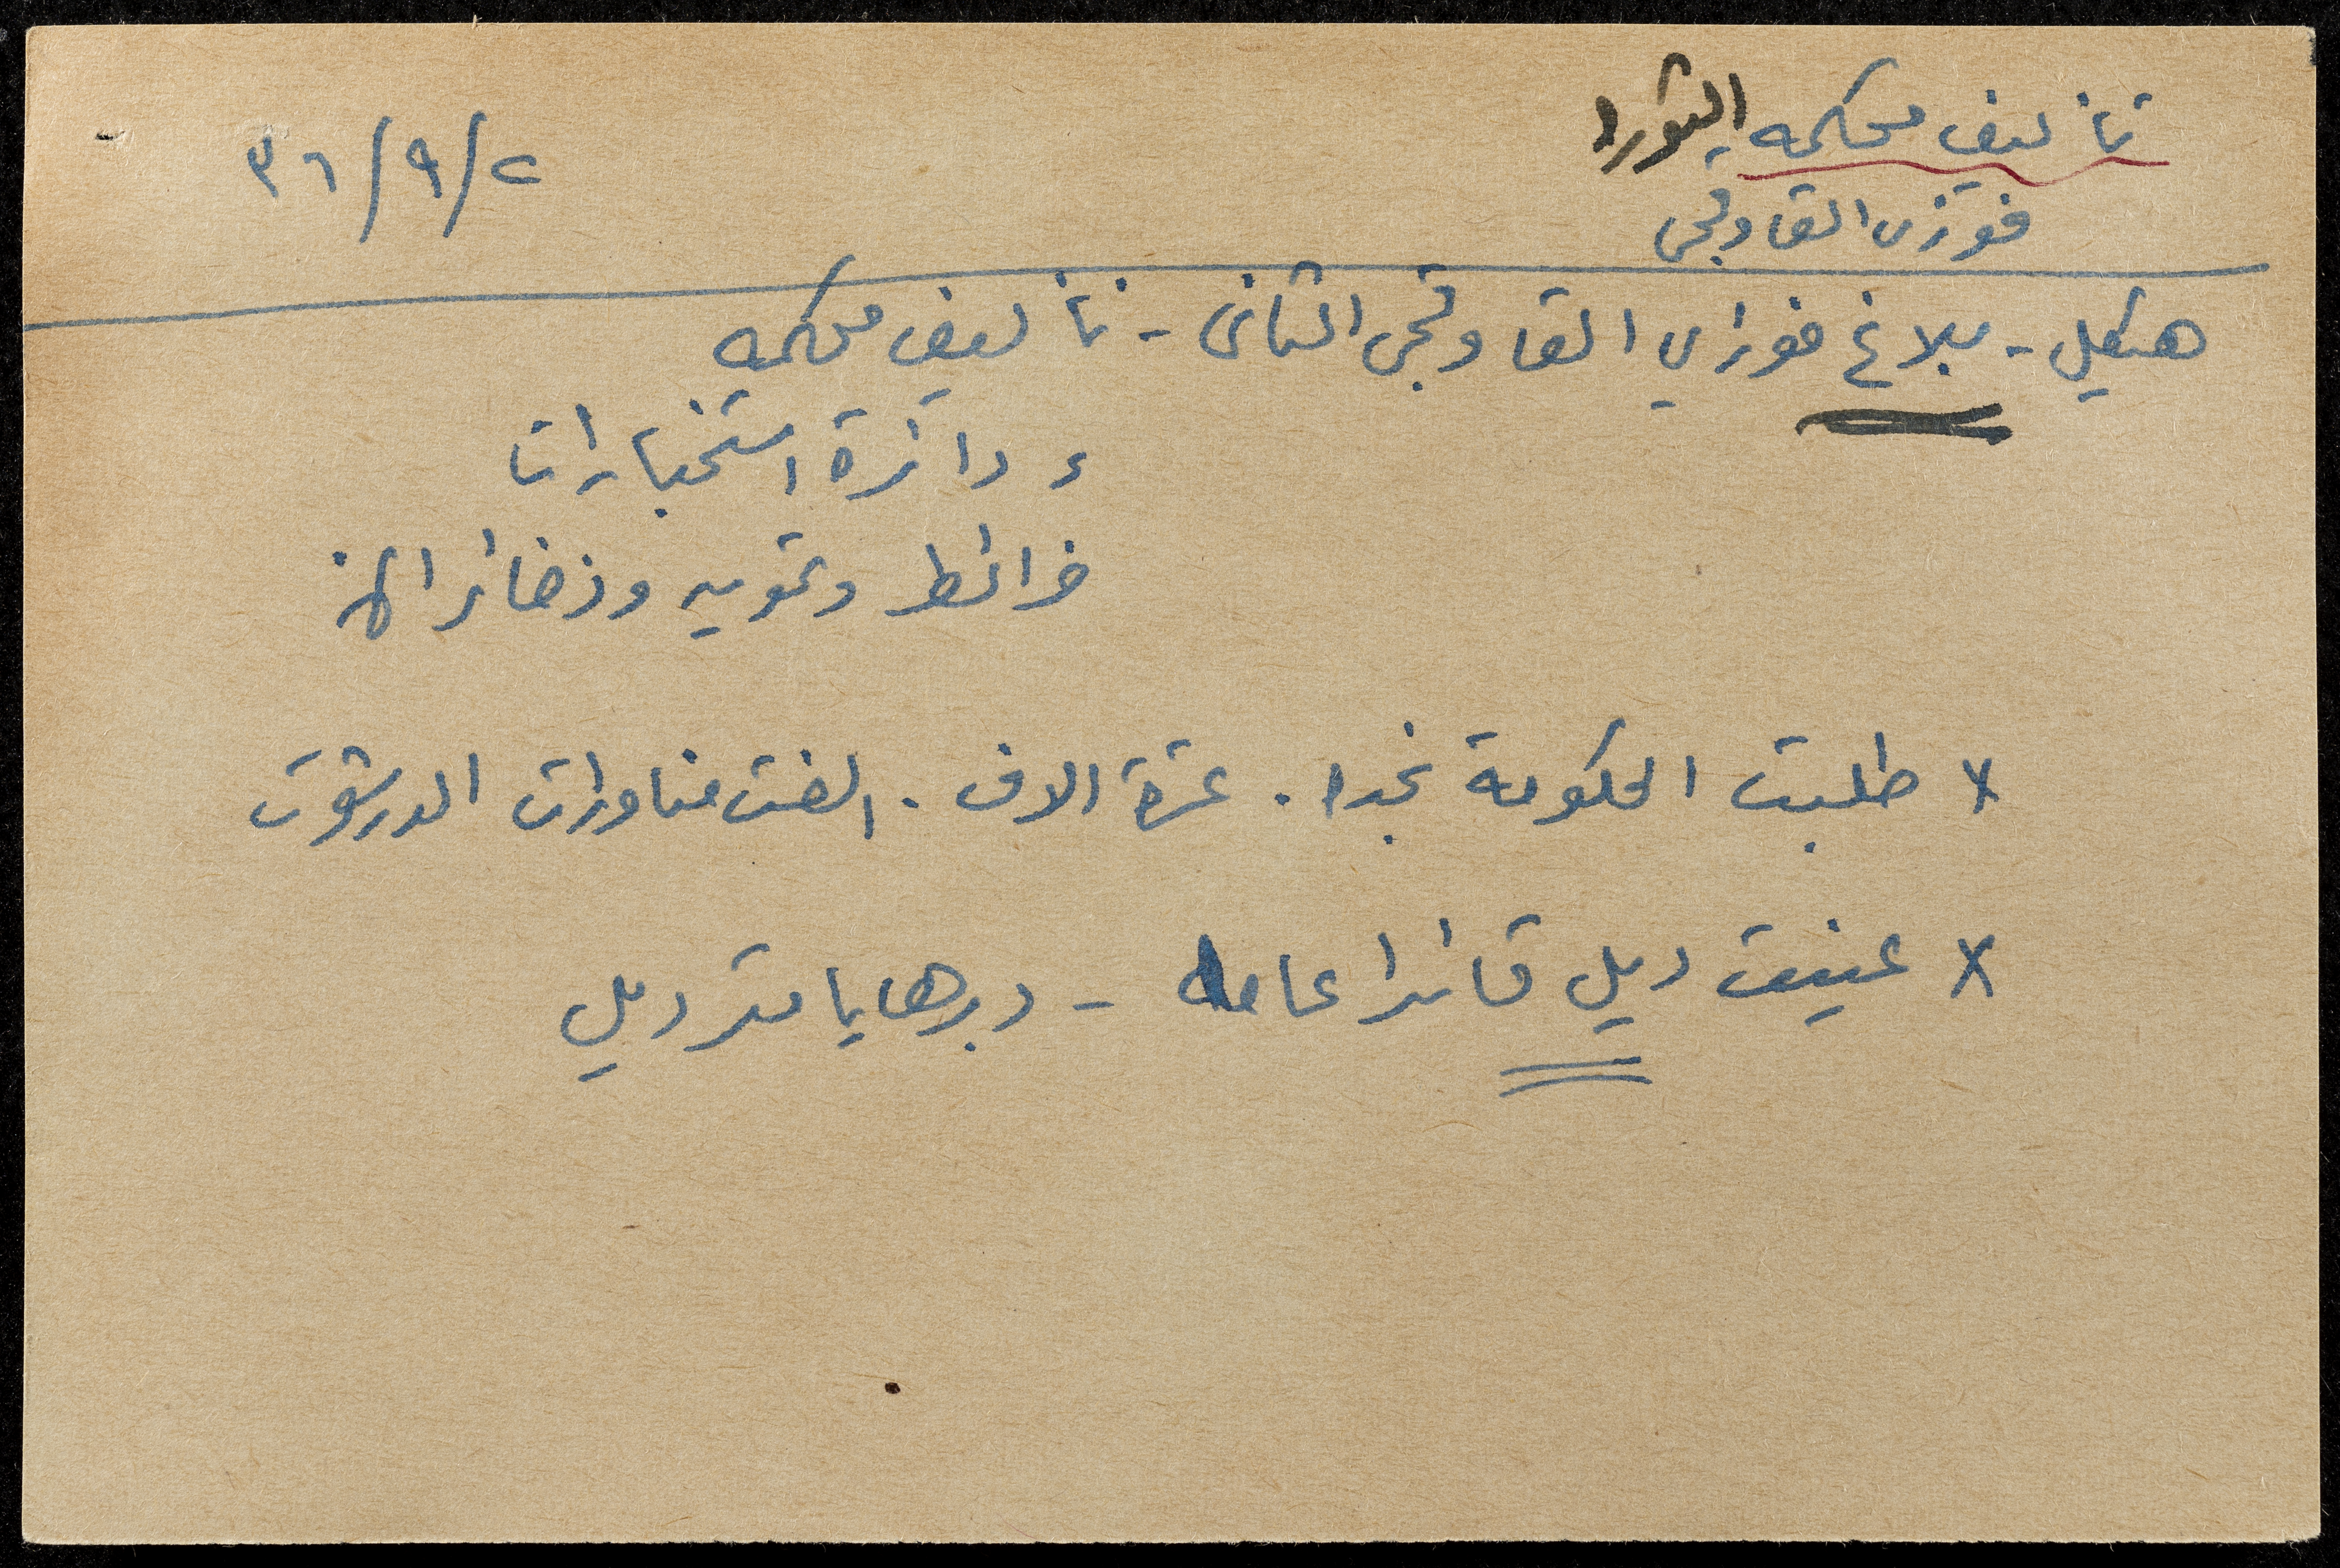 تأليف محكمه الثورة
٢/٩/٣٦
فوزي القاوقجي
هيكل - بلاغ فوزي القاوقجي الثاني - تأليف محكمه
و دائرة استخبارات
خرائط وتمويه وذخائر الخ
x طلبت الحكومة نجدا. عشرة الاف. الغت مناورات الدرشوت
x عينت ديل قائدا عاما - دبرها يا مستر ديل